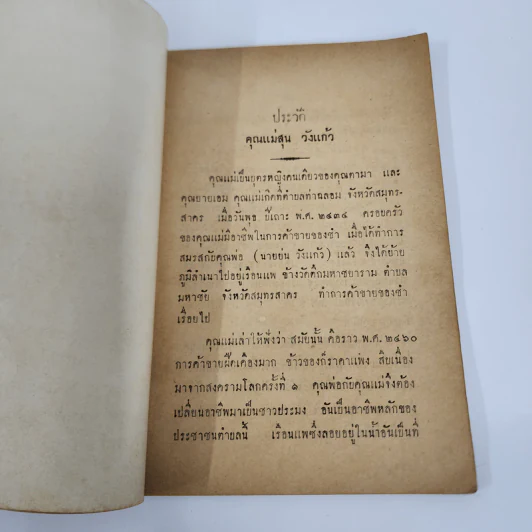 ประวัติ
คุณแม่สุน วังแก้ว
คุณแม่เป็นบุตรหญิงคนเดียวของคุณตามา และ
คุณยายเอม คุณแม่เกิดที่ตำบลท่าฉลอม จังหวัดสมุทร-
สาคร เมื่อวันพุธ ปีเถาะ พ.ศ. ๒๔๓๔ ครอบครัว
ของคุณแม่มีอาชีพในการค้าขายของชำ เมื่อได้ทำการ
สมรสกับคุณพ่อ (นายยุ่น วังแก้ว) แล้ว จึงได้ย้าย
ภูมิลำเนาไปอยู่เรือนแพ ข้างวัดตึกมหาชยาราม ตำบล
มหาชัย จังหวัดสมุทรสาคร ทำการค้าขายของชำ
เรื่อยไป
คุณแม่เล่าให้ฟังว่า สมัยนั้น คือราว พ.ศ. ๒๔๖๐
การค้าขายฝืดเคืองมาก ข้าวของก็ราคาแพง สืบเนื่อง
มาจากสงครามโลกครั้งที่ ๑ คุณพ่อกับคุณแม่จึงต้อง
เปลี่ยนอาชีพมาเป็นชาวประมง อันเป็นอาชีพหลักของ
ประชาชนตำบลนี้ เรือนแพซึ่งลอยอยู่ในน้ำอันเป็นที่